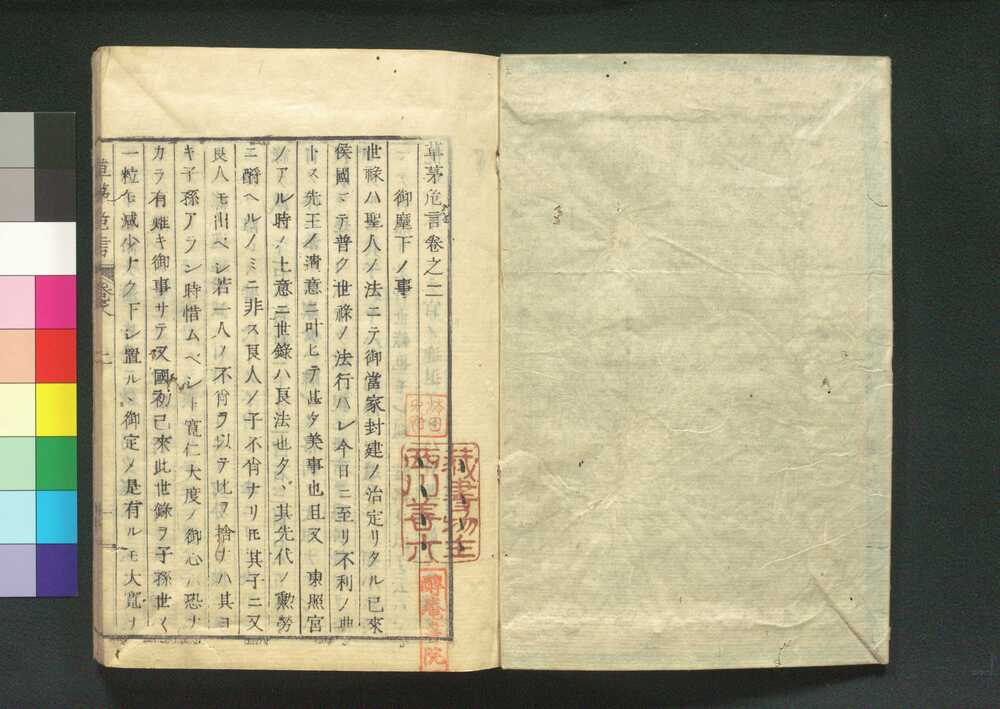 草茅危言巻之二
御麾下ノ事
世禄ハ聖人ノ法ニテ御當家封建ノ治定リタル已來
侯國マテ普ク世禄ノ法行ハレ今日ニ至リ不利ノ典
トス先王ノ遺意ニ叶ヒテ甚タ美事也且又 東照宮
ノアル時ノ上意ニ世録ハ良法也タヾ其先代ノ勲勞
ニ酬ヘルノミニ非ス良人ノ子不肖ナリ𪜈其子ニ又
良人モ出ベシ若一人ノ不肖ヲ以テ此ヲ捨ナハ其ヨ
キ子孫アラン時惜ムベシト寛仁大度ノ御心ハ恐ナ
カラ有難キ御事サテ又國初已來此世録ヲ子孫世〱
一粒モ減少ナク下シ置ルヽ御定メ是有ルモ大寛ノ
草茅危言
巻之
一
藏書物主
西川善六
書院